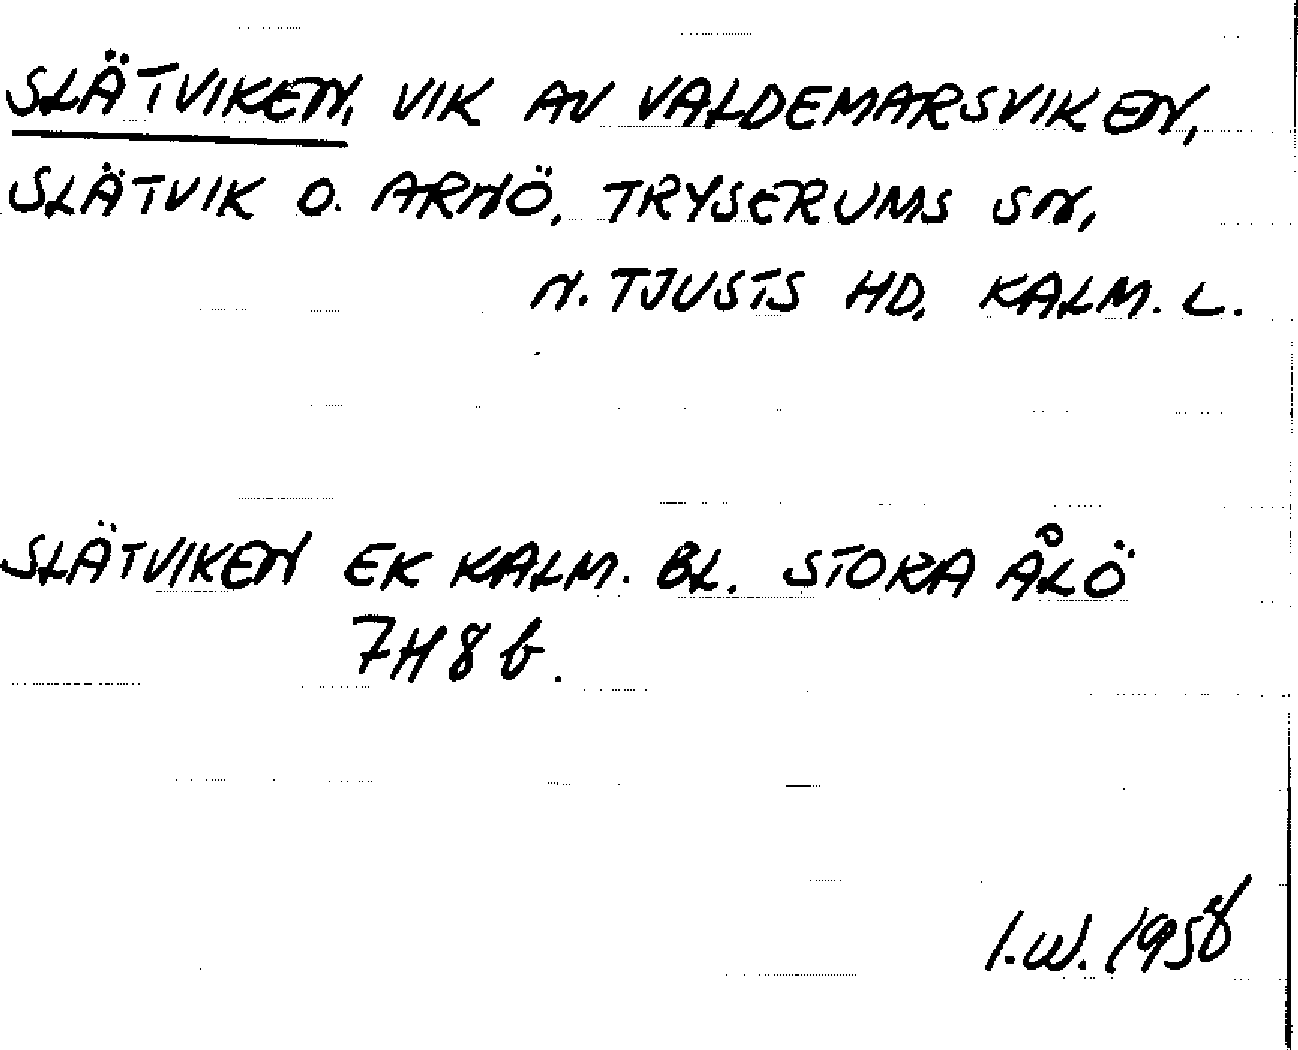 SLÄTVIKEN, VIK AV VALDEMARSVIKEN,
SLÄTVIK O. ARNÖ, TRYSERUMS SN,
N. TJUSTS HD, KALM. L.
SLÄTVIKEN EK KALM. BL. STORA ÅLÖ
7H8b.
I.W. 1958